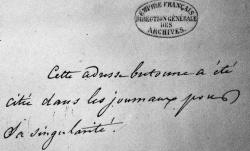 EMPIRE FRANÇAIS
DIRECTION GÉNÉRALE
DES
ARCHIVES.
Cette adresse bretonne a été
citée dans les journaux pour
sa singularité.